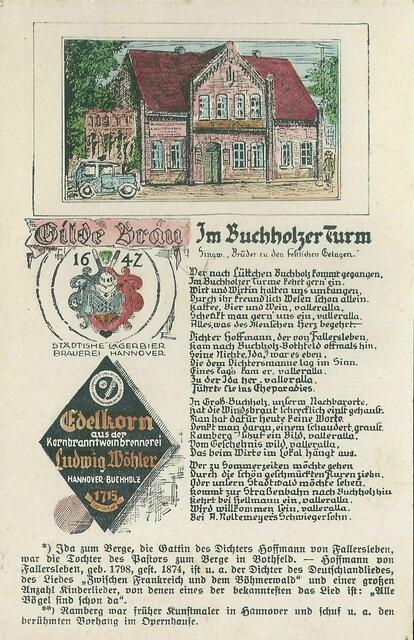 Gilde Bräu
1642
STÄDTISHE LAGERBIER
BRAUEREI HANNOVER
Edelkorn
aus der
Kornbranntweinbrennerei
Ludwig Wöhler
HANNOVER-BUCHHOLZ
1715
Im Buchholzer Turm
Singw. „Brüder zu den festlichen Gelagen.“
Wer nach Lüttchen Buchholz kommt gegangen,
Im Buchholzer Turme kehrt gern ein.
Wirt und Wirtin halten uns umfangen,
Durch ihr freundlich Wesen schon allein.
Kaffee, Bier und Wein, valleralla,
Schenkt man gern uns ein, valleralla.
Alles, was des Menschen Herz begehrt.
Dichter Hoffmann, der von Fallersleben,
kam nach Buchholz-Bothfeld oftmals hin.
Seine Nichte, Ida,*) war es eben,
Die dem Dichtersmanne lag im Sinn.
Eines Tags kam er, valleralla,
Zu der Ida her, valleralla,
Führte sie ins Eheparadies.
In Groß-Buchholz, unserm Nachbarorte,
hat die Windsbraut schrecklich einst gehaust.
Man hat dafür heut keine Worte.
Denkt man daran, einem schaudert, graust.
Ramberg**) schuf ein Bild, valleralla,
Vom Geschehnis wild, valleralla,
Das beim Wirte im Lokal hängt aus.
Wer zu Sommerzeiten möchte gehen
Durch die schön geschmückten Fluren ziehn,
Oder unsern Stadtwald möchte sehen,
kommt zur Straßenbahn nach Buchholz hin
kehrt bei Hellmann ein, valleralla,
Wird willkommen sein, valleralla,
Bei A. Noltemeyers Schwiegersohn.
*) Ida zum Berge, die Gattin des Dichters Hoffmann von Fallersleben,
war die Tochter des Pastors zum Berge in Bothfeld. — Hoffmann von
Fallersleben, geb. 1798, gest. 1874, ist u. a. der Dichter des Deutschlandliedes,
des Liedes „Zwischen Frankreich und dem Böhmerwald“ und einer großen
Anzahl Kinderlieder, von denen eines der bekanntesten das Lied ist: „Alle
Vögel sind schon da“.
**) Ramberg war früher Kunstmaler in Hannover und schuf u. a. den
berühmten Vorhang im Opernhause.